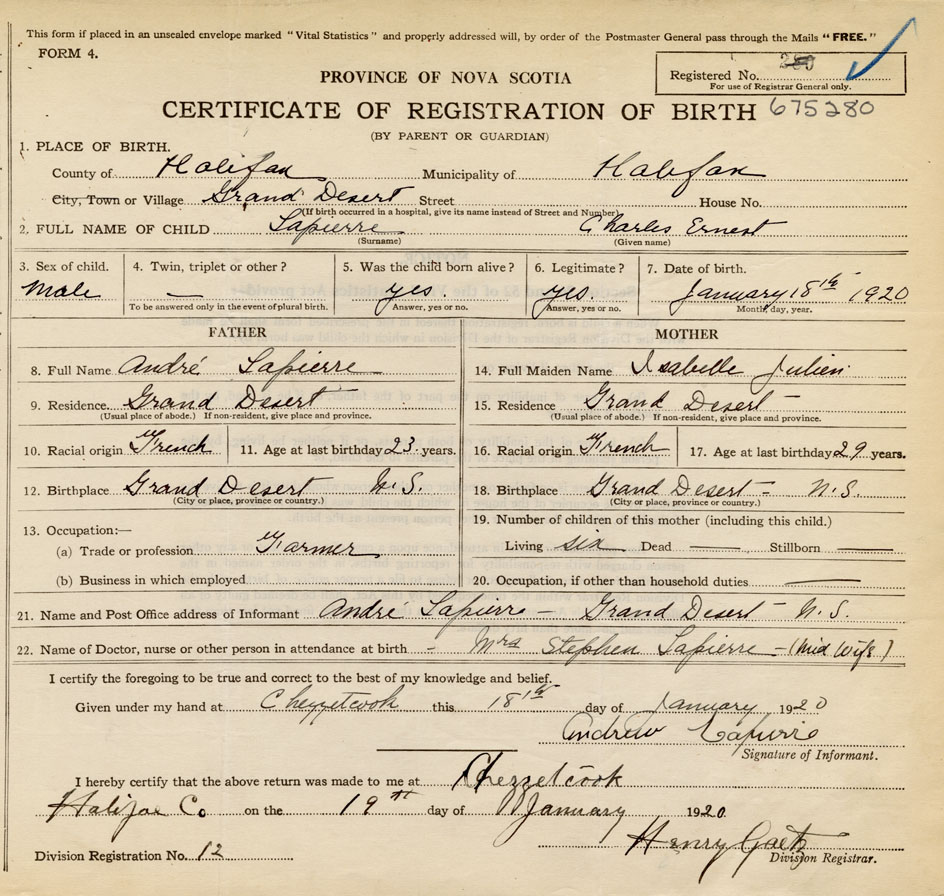 This form if placed in an unsealed envelope marked "Vital Statistics" and properly addressed will, by order of the Postmaster General pass through the Mails "FREE."
FORM 4.
PROVINCE OF NOVA SCOTIA
Registered No. 280
For use of Registrar General only.
CERTIFICATE OF REGISTRATION OF BIRTH 675280
(BY PARENT OR GUARDIAN)
1. PLACE OF BIRTH.
County of Halifax Municipality of Halifax
City, Town or Village Grand Desert Street House No.
(If birth occurred in a hospital, give its name instead of Street and Number)
2. FULL NAME OF CHILD Lapierre Charles Ernest
(Surname) (Given name)
3. Sex of child. 4. Twin, triplet or other? 5. Was the child born alive? 6. Legitimate? 7. Date of birth.
Male — yes. yes. January 18th 1920
To be answered only in the event of plural birth. Answer, yes or no. Answer, yes or no. Month, day, year.
FATHER MOTHER
8. Full Name André Lapierre 14. Full Maiden Name Isabelle Julien
9. Residence Grand Desert 15. Residence Grand Desert
(Usual place of abode.) If non-resident, give place and province. (Usual place of abode.) If non-resident, give place and province.
10. Racial origin French 11. Age at last birthday 23 years. 16. Racial origin French 17. Age at last birthday 29 years.
12. Birthplace Grand Desert N.S. 18. Birthplace Grand Desert - N.S.
(City or place, province or country.) (City or place, province or country.)
13. Occupation:— 19. Number of children of this mother (including this child.)
(a) Trade or profession Farmer Living six Dead — Stillborn —
(b) Business in which employed 20. Occupation, if other than household duties —
21. Name and Post Office address of Informant André Lapierre - Grand Desert - N.S.
22. Name of Doctor, nurse or other person in attendance at birth - Mrs Stephen Lapierre - (Mid Wife)
I certify the foregoing to be true and correct to the best of my knowledge and belief.
Given under my hand at Chezzetcook this 18th day of January 1920
Andrew Lapierre
Signature of Informant.
I hereby certify that the above return was made to me at Chezzetcook
Halifax Co on the 19th day of January 1920.
Henry Gaetz
Division Registration No. 12 Division Registrar.